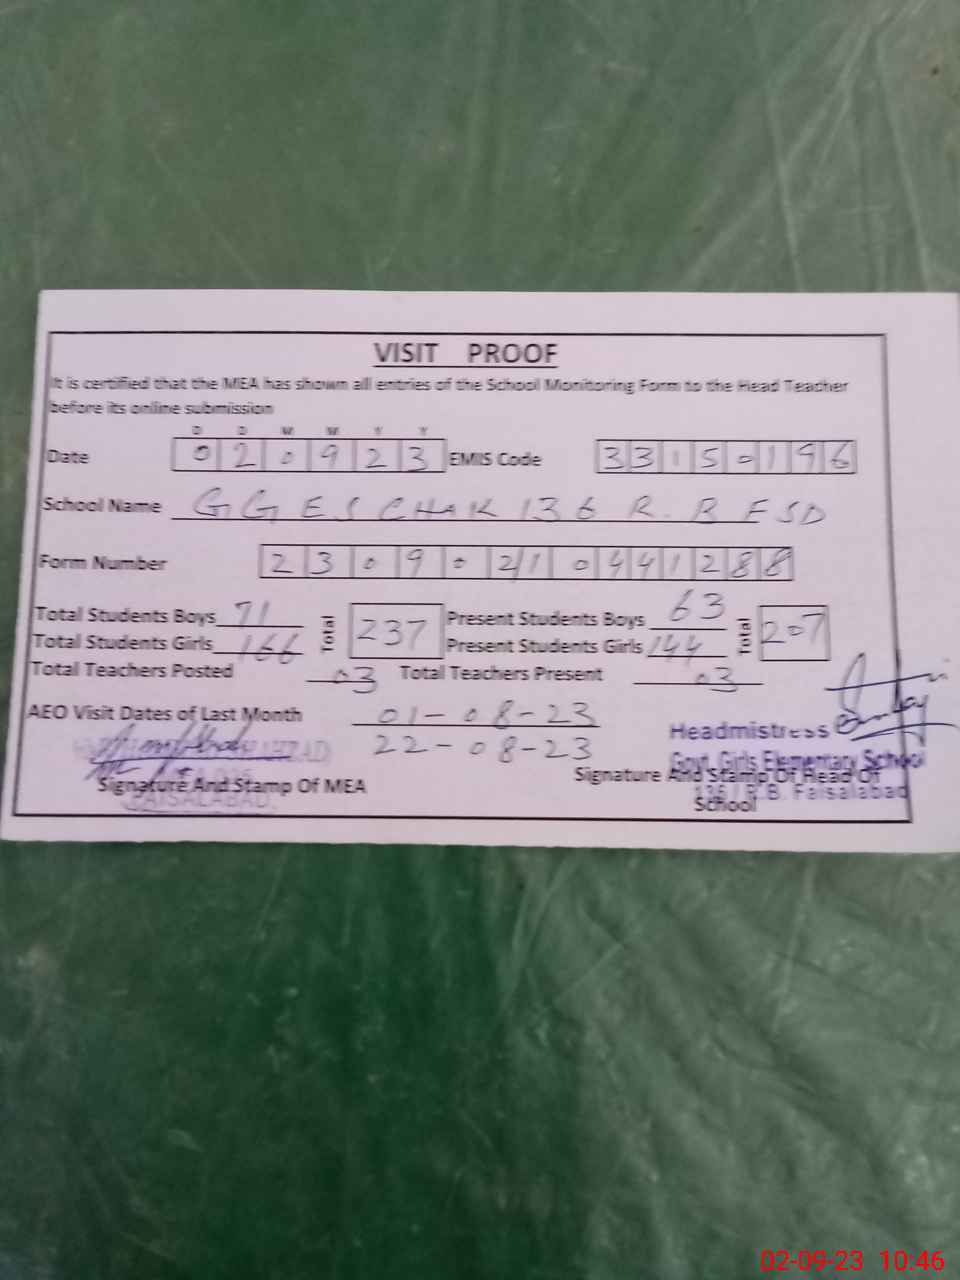 VISIT PROOF
It is certified that the MEA has shown all entries of the School Monitoring Form to the Head Teacher
before its online submission
D D M M Y Y
Date 0 2 0 9 2 3 EMIS Code 3 3 1 5 0 1 9 6
School Name GGES CHAK 136 R.B FSD
Form Number 2 3 0 9 0 2 1 0 4 4 1 2 8 8
Total Students Boys 71 Total 237 Present Students Boys 63 Total 207
Total Students Girls 166 Present Students Girls 144
Total Teachers Posted 03 Total Teachers Present 03
AEO Visit Dates of Last Month 01-08-23
22-08-23
Headmistress
Govt. Girls Elementary School
136 / R.B. Faisalabad
Signature And Stamp Of MEA
FAISALABAD.
Signature And Stamp Of Head Of
School
02-09-23 10:46